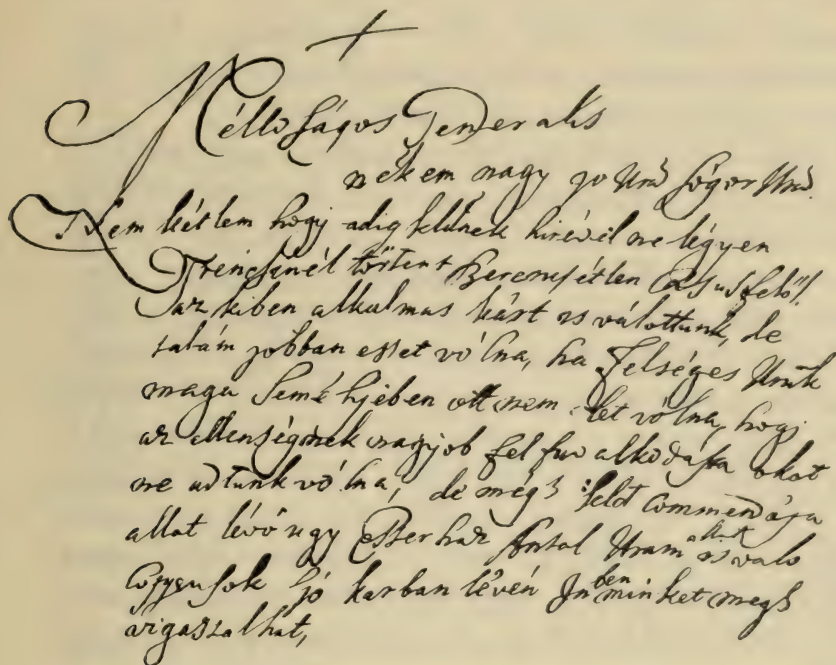 Méltoságos Generalis
nékem nagy jo Uram Sógor Uram.
Nem kétlem hogy adig kldnek hirével ne légyen
Trencsénél törtent Szerencsétlen Casus felöl.
az kiben alkalmas kárt is válottunk, de
talám jobban esset vólna, ha Felséges Urunk
maga Seméhjében ott nem let vólna, hogj
az ellenséginek nagjob fel fuvalkodásra okot
ne adtunk vólna, de még Kldt Commendája
allat lévö ugy Eszterhaz Antal Uram allat is valo
Corpusok jó karban lévén Isten benünket megh
vigasztalhat,